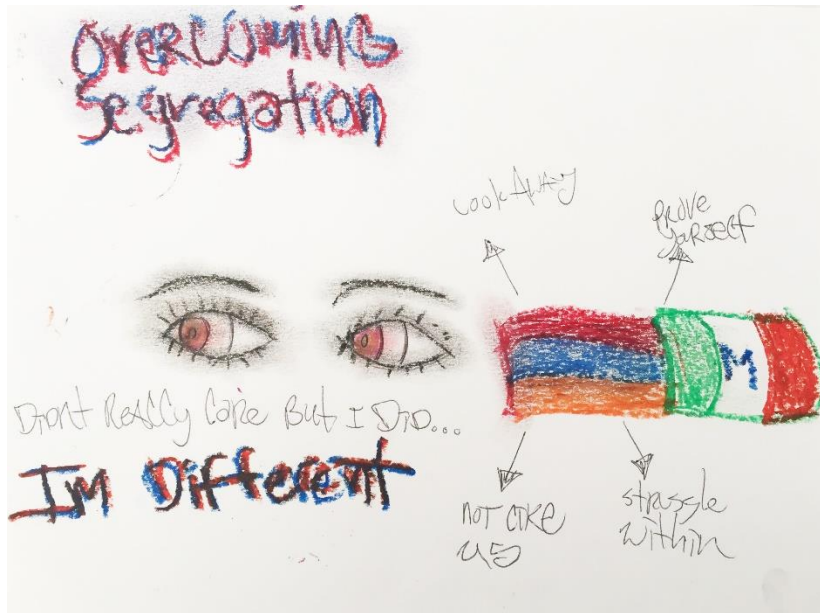 OVERCOMING
Segregation
Look Away
Prove
Yourself
M
Didnt Really Care But I Did...
Im Different
not like
us
struggle
within